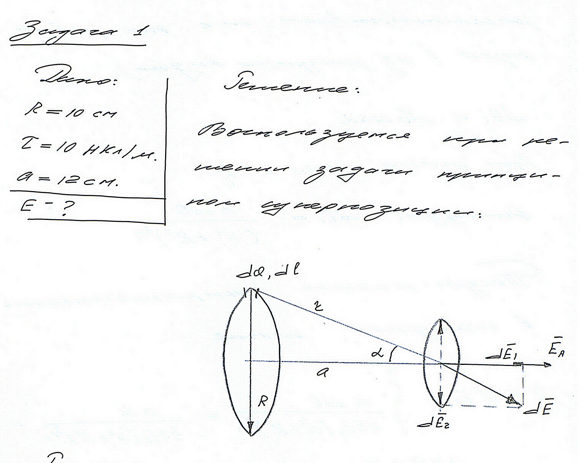 Задача 1
Дано:
R = 10 см
τ = 10 нКл/м.
a = 12 см.
E - ?
Решение:
Воспользуемся при ре-
шении задачи принци-
пом суперпозиции.
dQ, dl
r
α
a
R
dE̅₁
E̅A
dE̅₂
dE̅